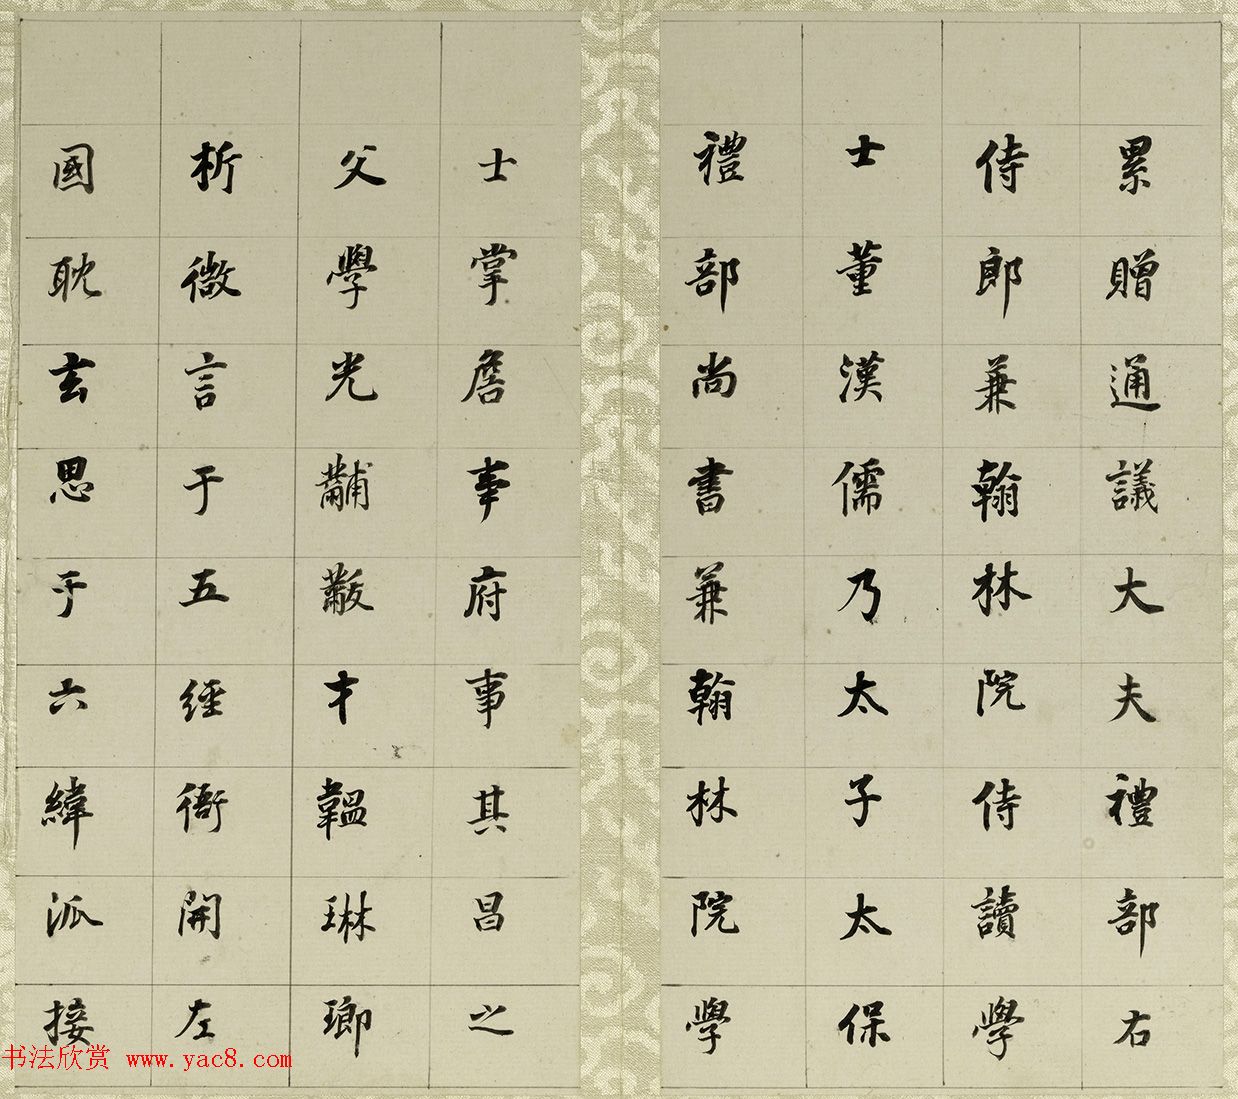 累贈通議大夫禮部右
侍郎兼翰林院侍讀學
士董漢儒乃太子太保
禮部尚書兼翰林院學
士掌詹事府事其昌之
父學光黼黻才韞琳瑯
析微言于五經衢開左
國耽玄思于六緯派接
书法欣赏 www.yac8.com